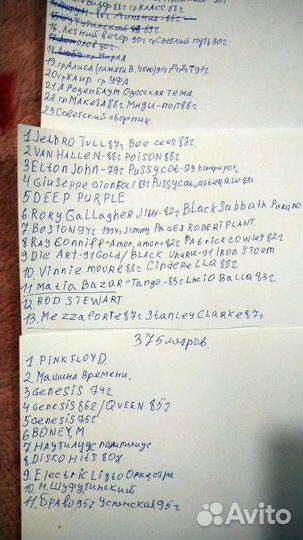 16. Летний вечер 90г грСветлый путь 90г
19 грАлиса (памяти В.Цоя)
20 грКлир. гр УФА
21. А.Розенбаум. Одесская тема
22. гр Макета 88г Миди-поп 88г
23. Советский сборник
1 Jethro Tull 87г Bee Gees 87г.
2 VAN HALLEN-88г POISON 88г
3 Elton John-79г Pussycat-79
4 Giuseppe 83г Pussycat,
5 DEEP PURPLE
6 Rory Gallagher 82г BLackSabbath
7 Boston 94г 1994, Jimmy PAGE Robert PLANT
8 RAY Conniff "Amor, amor" 82г Patrick Cowley 82г
9 Die Art-91 Gold/BLACK Uhuru-91 IRON STORM
10 Vinnie moore 88г Cinderella 88г
11 Matia Bazar "Tango-83г Lucio Balla 83г
12 ROD STEWART
13. Mezzaforte 87г Stanley Clarke 87г
375 литров.
1. PINK FLOYD
2. Машина Времени,
3 Genesis 74г
4 Genesis 86г/QVEEN 85г
5 Genesis 75г
6 BONEY, M
7 Наутилус помпилиус
8 Disko Hits 80х
9. Electric Light Оркестра
10. М. Шуфутинский
11. Браво 95г Успенская 95г
Avito